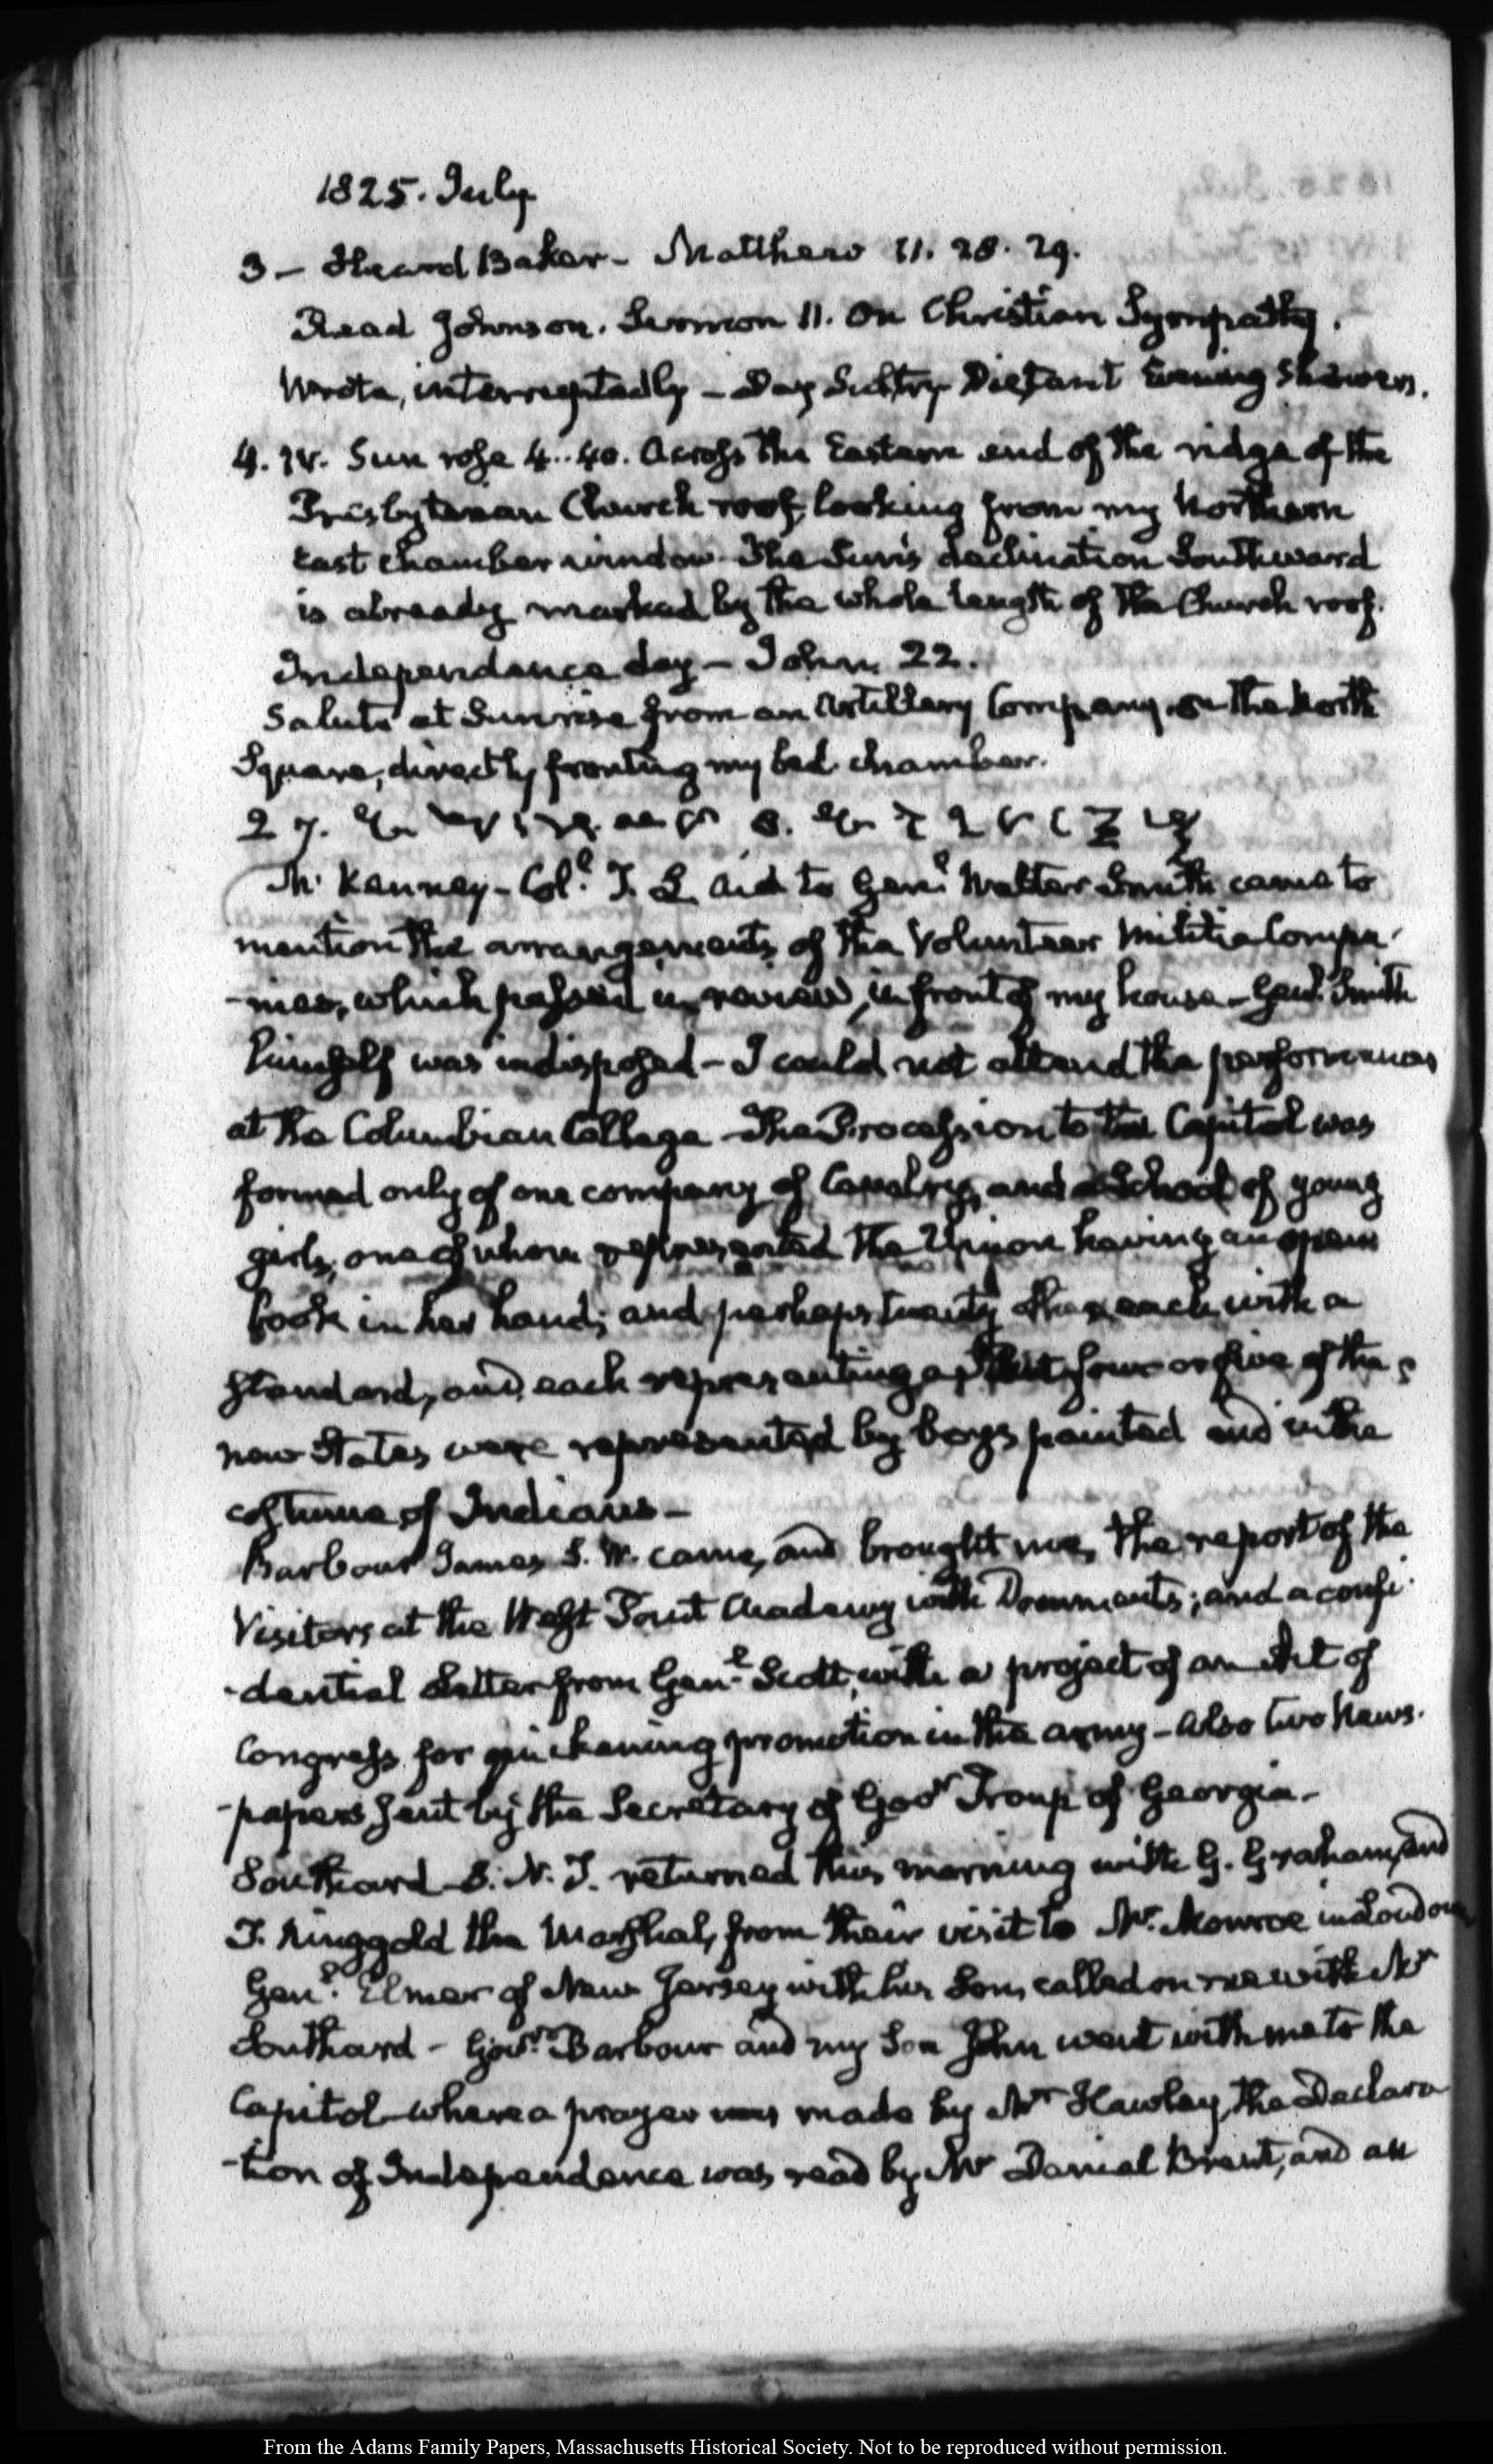 1825. July
3 – Heard Baker – Matthew 11. 28. 29.
Read Johnson. Sermon 11. On Christian Sympathy.
Wrote, interruptedly – Day Sultry Distant Evening Showers.
4. IV. Sun rose 4..40. Across the Eastern end of the ridge of the
Presbyterian Church roof, looking from my Northern
East chamber window. The Sun's declination Southward
is already marked by the whole length of the Church roof.
Independance day – John. 22.
Salute at Sunrise from an Artillery Company, on the North
Square, directly fronting my bed chamber.
27.
Mc. Kenney – Coll. T. L. Aid to Genl. Walter Smith came to
mention the arrangements of the Volunteer Militia Compa-
-nies, which passed in review, in front of my house – Genl. Smith
himself was indisposed – I could not attend the performances
at the Columbian College – The Procession to the Capitol was
formed only of one company of Cavalry, and a School of young
girls, one of whom represented the Union having an open
book in her hand; and perhaps twenty others each with a
standard, and each representing a State four or five of the
new States were represented by boys painted and in the
costume of Indians –
Barbour James S. W. came, and brought me, the report of the
Visitors at the West Point Academy with Documents; and a confi-
-dential Letter from Genl. Scott, with a project of an Act of
Congress for quickening promotion in the army – also two News-
-papers sent by the Secretary of Govr Troup of Georgia. –
Southard S. N. J. returned this morning with G. Graham, and
T. Ringgold the Marshal, from their visit to Mr. Monroe in Loudoun
Genl. Elmer of New Jersey with his Son, called on me with Mr
Southard – Govr. Barbour and my Son John went with me to the
Capitol where a prayer was made by Mr Hawley, the Declara
-tion of Independence was read by Mr Daniel Brent, and an
From the Adams Family Papers, Massachusetts Historical Society. Not to be reproduced without permission.